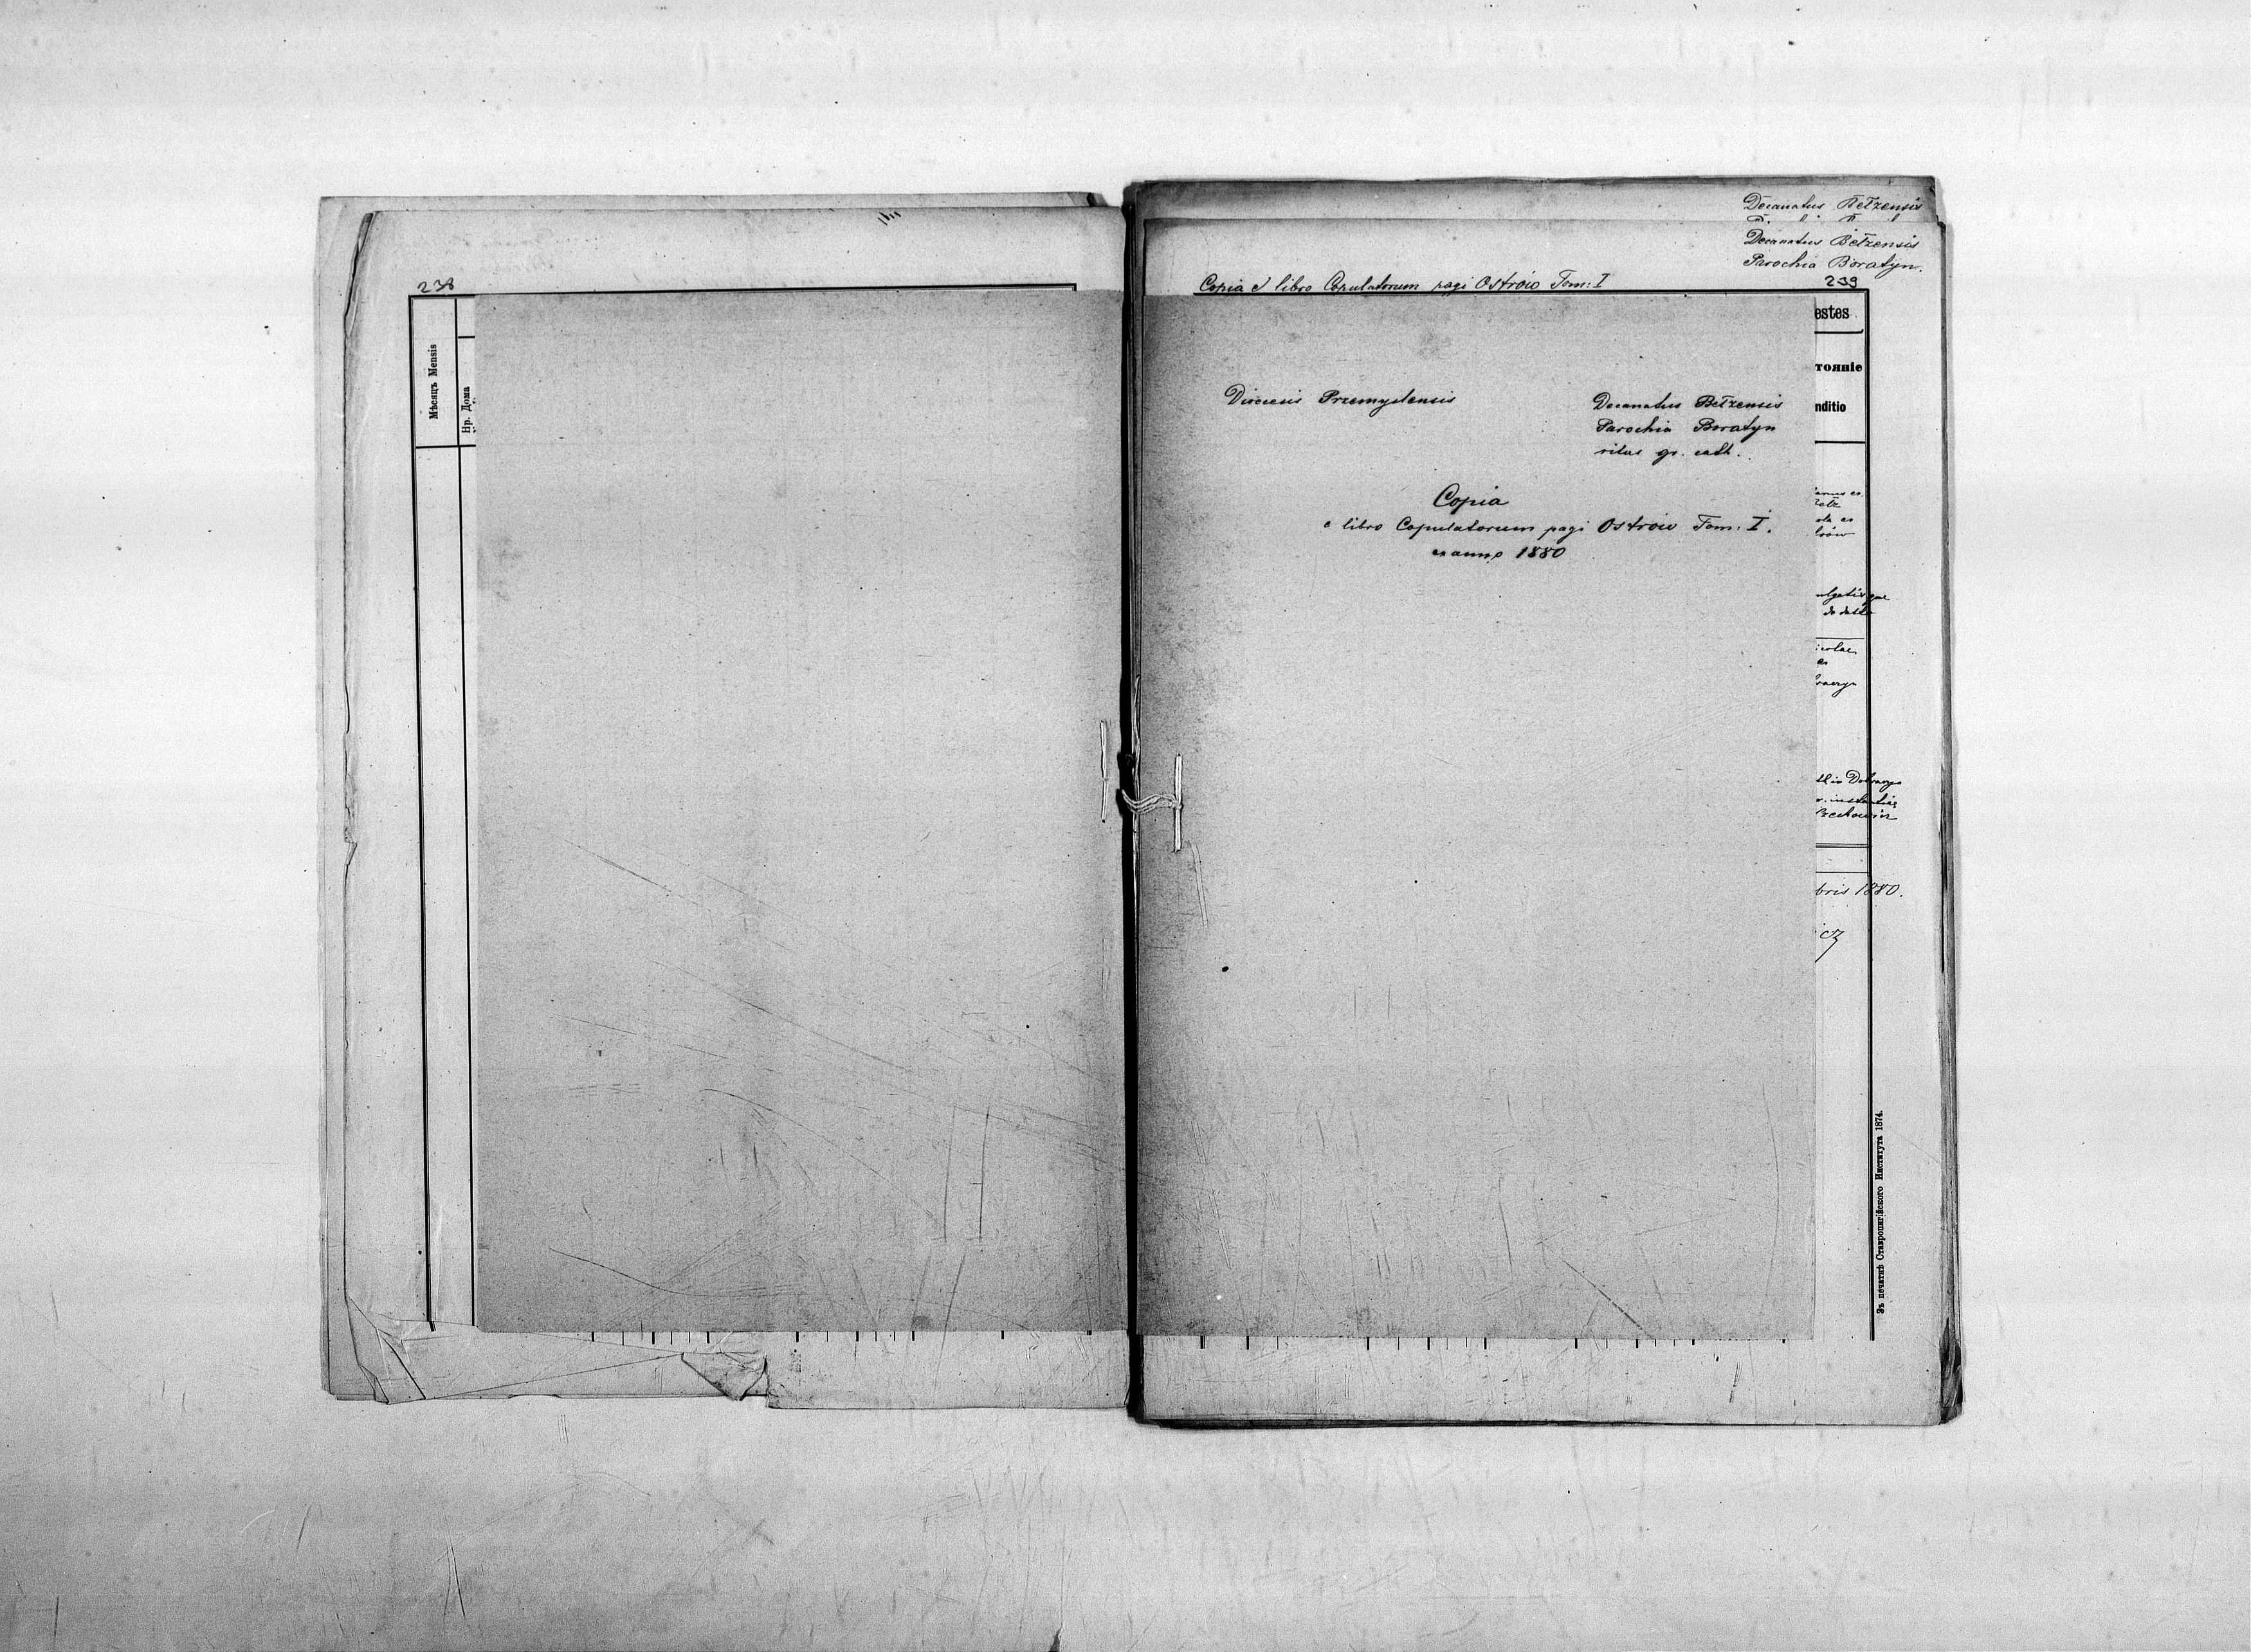 238
Мѣсяцъ Mensis
Нр. Дома
Decanatus Bełzensis
Decanatus Bełzensis
Parochia Boratyn.
Copia e libro Copulatorum pagi Ostrów Tom: I
239
estes
тоянie
nditio
Dioecesis Przemyslensis
Decanatus Bełzensis
Parochia Boratyn
ritus gr. cath.
Copia
e libro Copulatorum pagi Ostrów Tom: I.
ex anno 1880
bris 1880.
icz
Зъ печатнѣ Ставропигійского Института 1874.